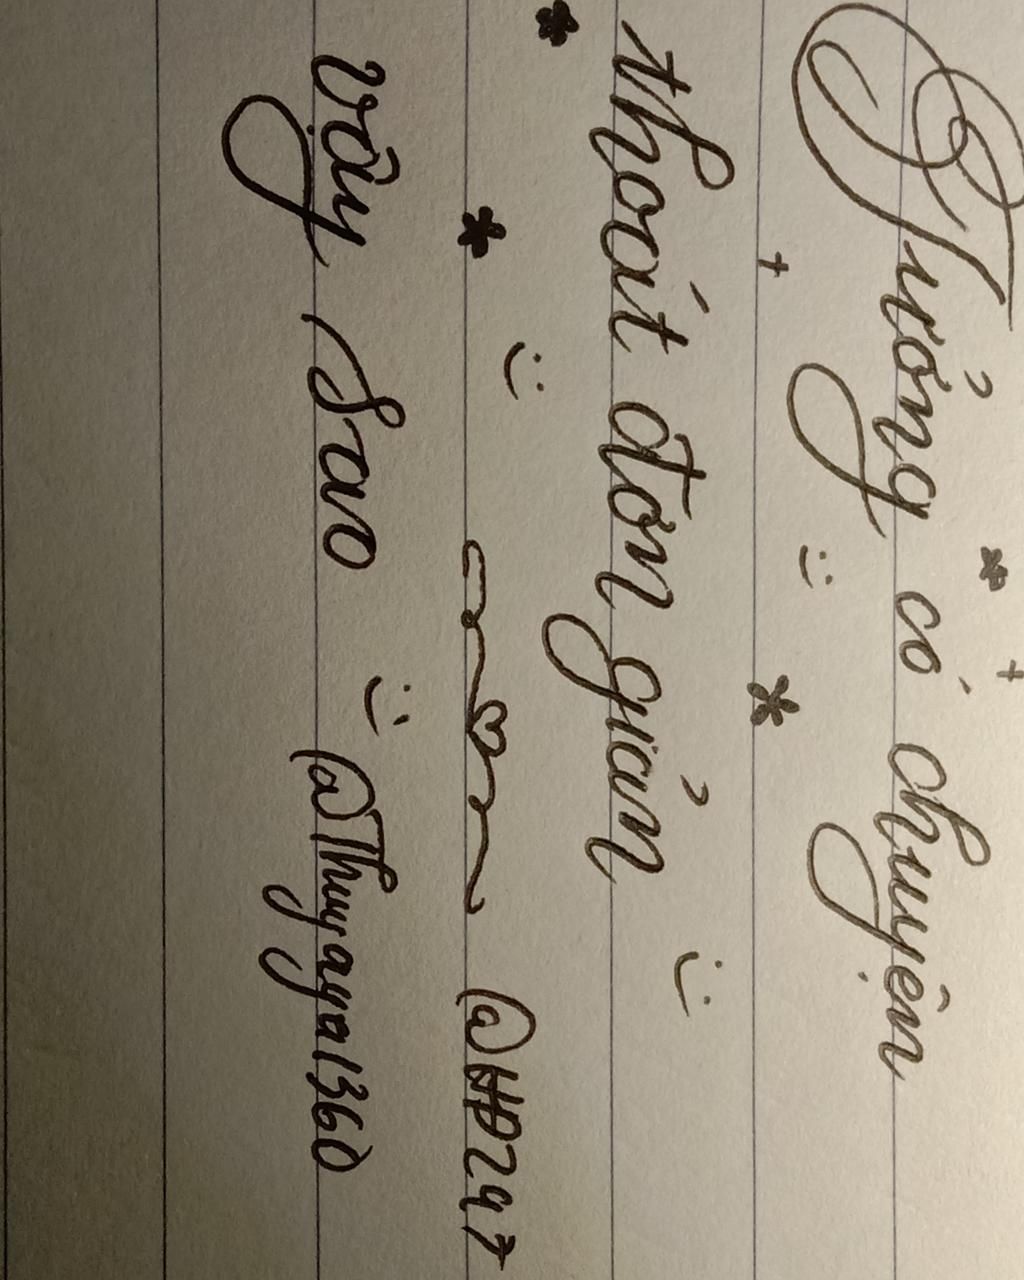 Tưởng có chuyện
thoát đơn giản
@HĐ247
vậy sao @Thuyaya1360